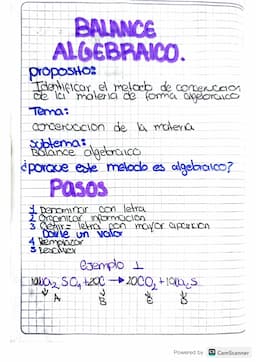 BALANCE
ALGEBRAICO.
proposito:
Identificar el metodo de concervacion
de la materia de forma algebraica
Tema:
concervacion de la materia
subtema:
Balance algebraico
¿porque este metodo es algebraico?
Pasos
1 Denominar con letra
2 Organizar informacion
3 Definir letra con mayor aparicion
Darle un valor
4 Remplazar
5 Resolver
Ejemplo 1
SO4 + → 2CO2 +
A B
Powered by CS CamScanner